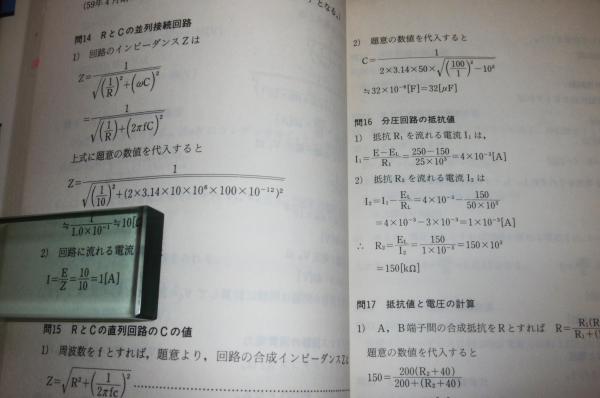 (59年4月期
となる。)
問14 RとCの並列接続回路
1) 回路のインピーダンスZは
Z=1/√((1/R)²+(ωC)²)
=1/√((1/R)+(2πfC)²)
上式に題意の数値を代入すると
Z=1/√((1/10)²+(2×3.14×10×10⁶×100×10⁻¹²)²)
≒1/1.0×10⁻¹≒10[
2) 回路に流れる電流
I=E/Z=10/10=1[A]
問15 RとCの直列回路のCの値
1) 周波数をfとすれば，題意より，回路の合成インピーダンスZは
Z=√(R²+(1/2πfc)²)
2) 題意の数値を代入すると
C=1/(2×3.14×50×√((100/1)²−10²))
≒32×10⁻⁶[F]=32[μF]
問16 分圧回路の抵抗値
1) 抵抗R₁を流れる電流I₁は，
I₁=(E−E_L)/R₁=(250−150)/(25×10³)=4×10⁻³[A]
2) 抵抗R₂を流れる電流I₂は
I₂=I₁−E_L/R_L=4×10⁻³−150/(50×10³)
=4×10⁻³−3×10⁻³=1×10⁻³[A]
∴ R₂=E_L/I₂=150/(1×10⁻³)=150×10³
=150[kΩ]
問17 抵抗値と電圧の計算
1) A，B端子間の合成抵抗をRとすれば R=R₁(R/R₁+(
題意の数値を代入すると
150=200(R₂+40)/(200+(R₂+40))